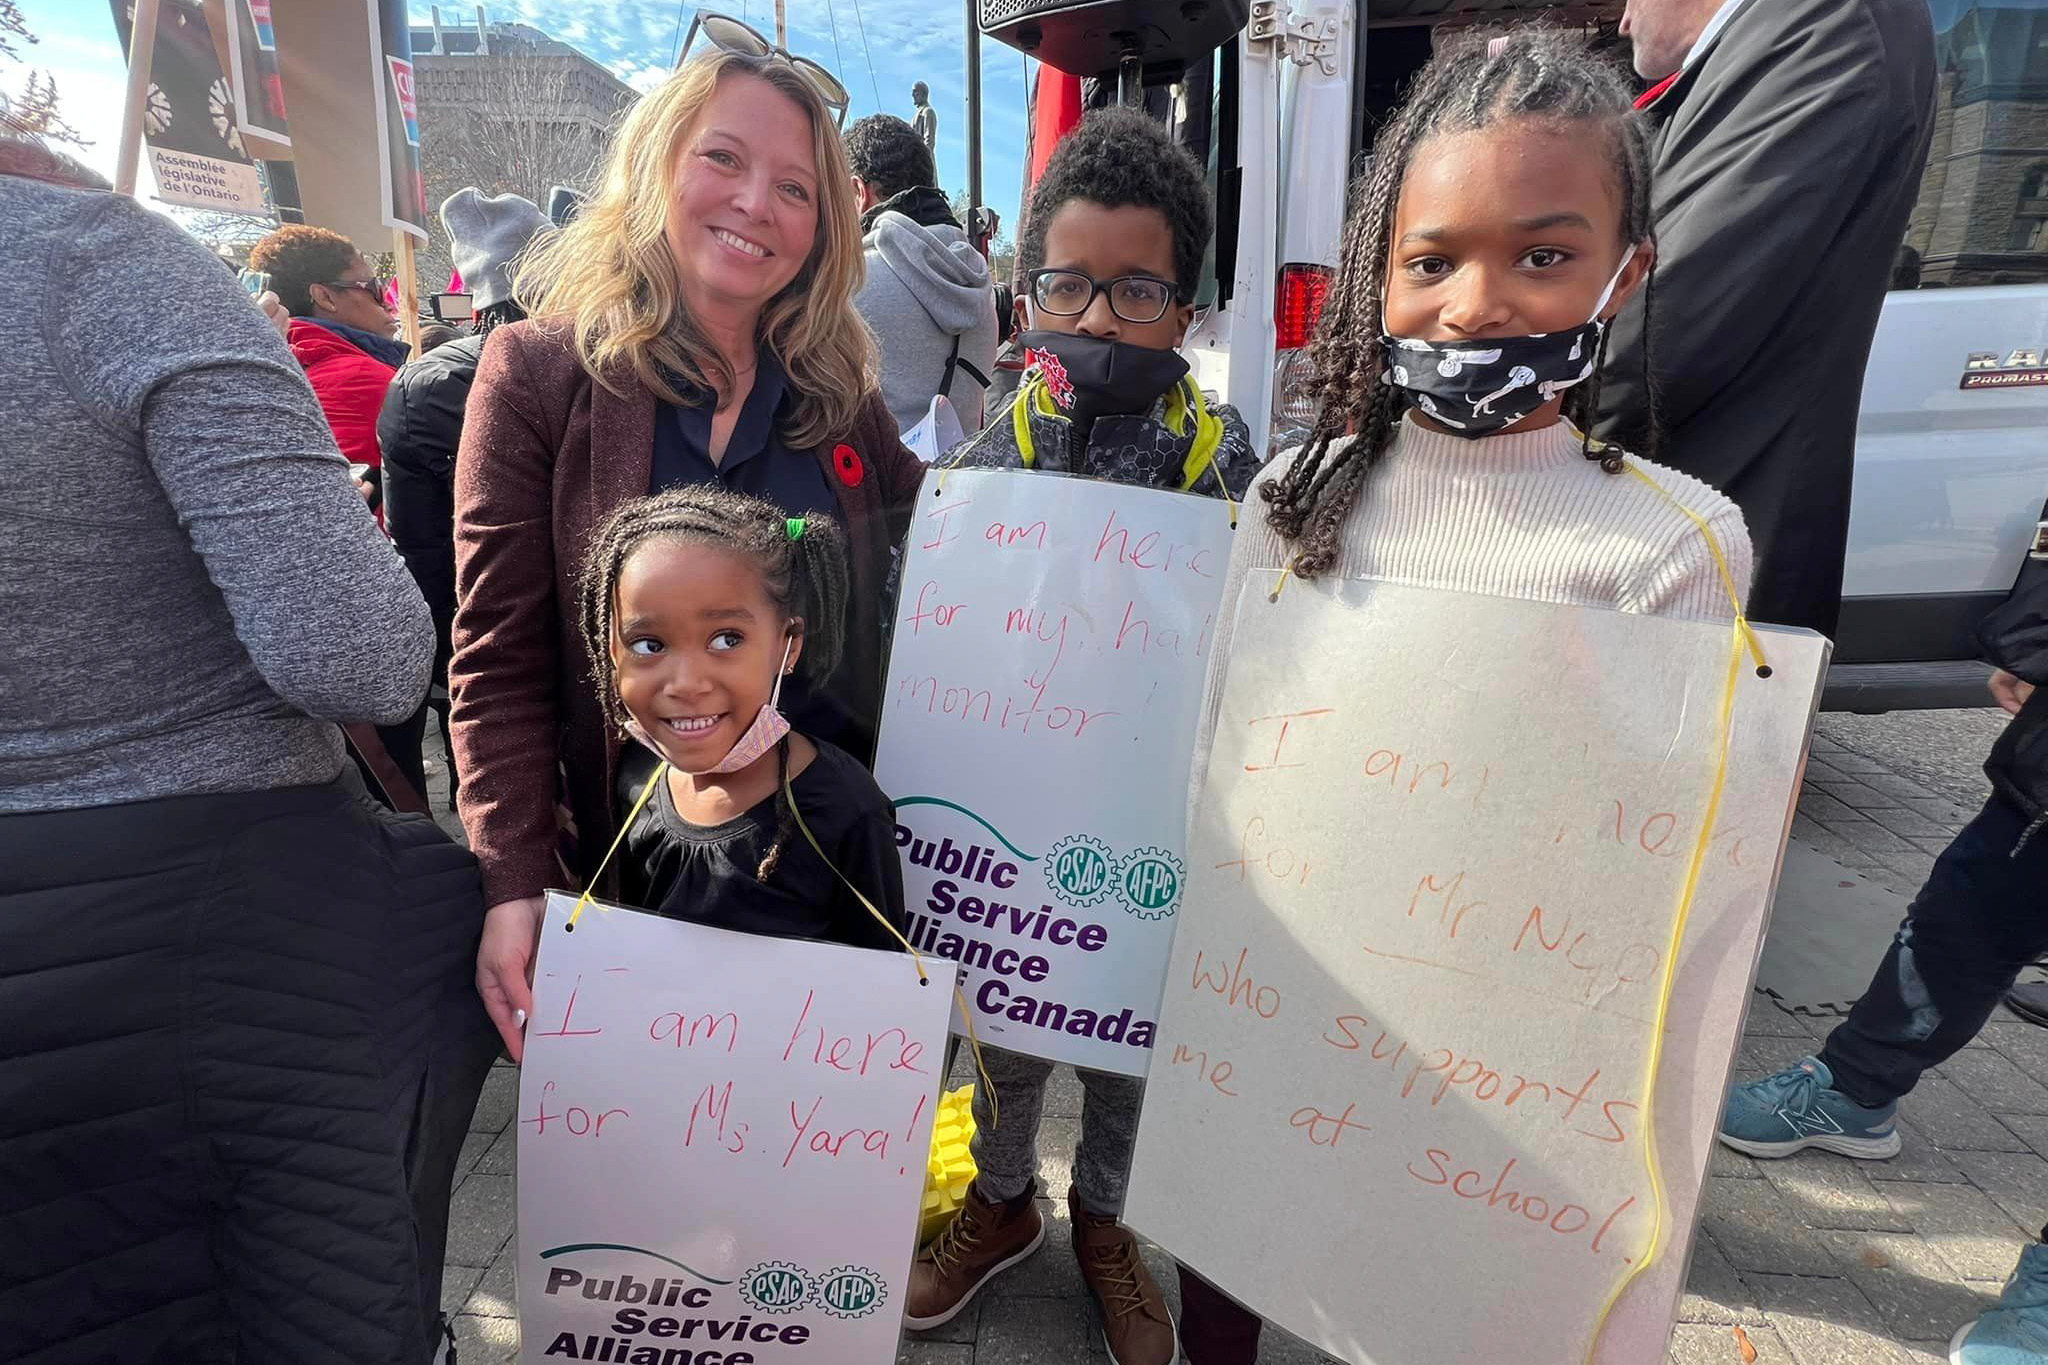 Assemblée
législative
de l'Ontario
I am here
for my hal
monitor!
Public
PSAC AFPC
Service
lliance
Canada
RA
PROMAST
I am here
for Mr. Ngo
who supports
me at school.
I am here
for Ms. Yara!
Public
PSAC AFPC
Service
Alliance